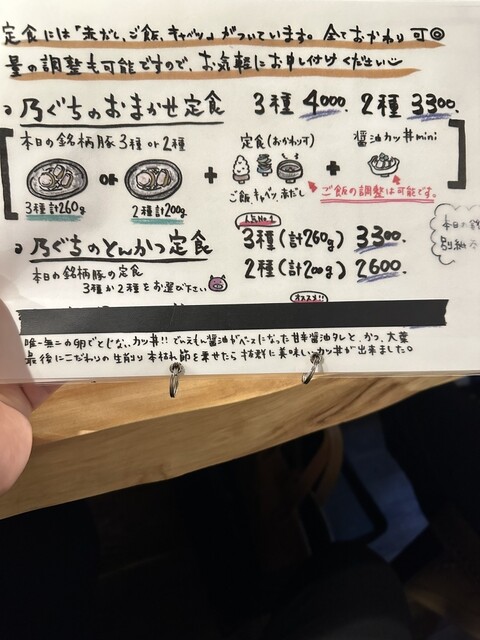 定食には「赤だし、ご飯、キャベツ」がついています。全ておかわり可◎
量の調整も可能ですので、お気軽にお申し付けください
乃ぐちのおまかせ定食 3種 4000. 2種 3300.
本日の銘柄豚 3種 or 2種 定食(おかわり可) 醤油カツ丼mini
or + +
3種 計260g 2種 計200g ご飯 キャベツ 赤だし ご飯の調整は可能です。
人気No.1
乃ぐちのとんかつ定食 3種(計260g) 3300.
本日の銘柄豚の定食 2種(計200g) 2600.
3種か2種をお選び下さい
本日の
別紙
オススメ!!
唯一無二の卵でとじない、カツ丼!! でんえもん醤油がベースになった甘辛醤油タレと、かつ、大葉
最後にこだわりの生削り本枯れ節を乗せたら 抜群に美味しいカツ丼が出来ました。